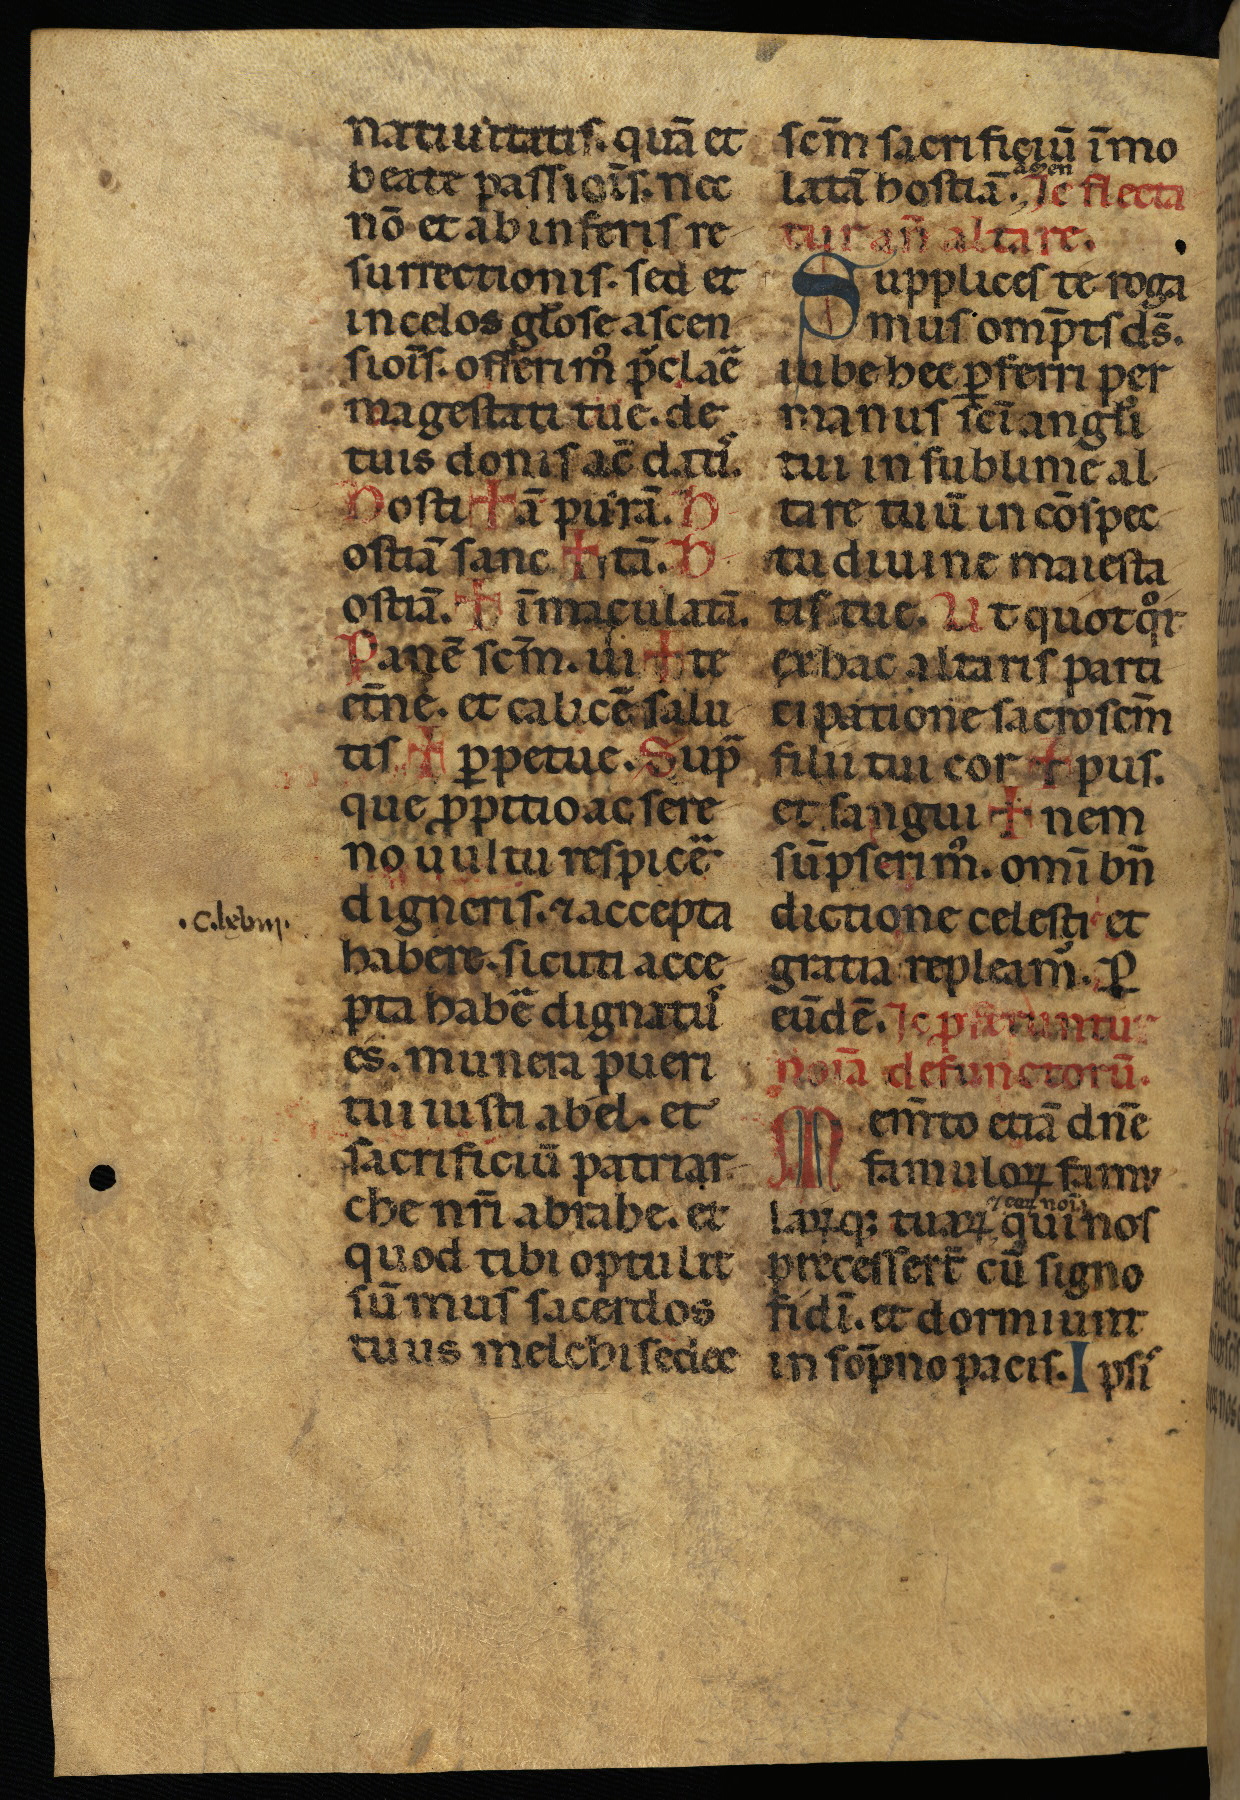 natiuitatis. quā et
beate passiois̄. nec
nō et ab inferis re
surrectionis. sed et
in celos głose ascen
siois̄. offerim᷒ p̄clae᷒
magestati tue. de
tuis donis ac̄ dati᷒.
Hosti ✝ ā purā. H
ostiā sanc ✝ tā. H
ostiā. ✝ īmaculatā.
Panē scm̄. ui ✝ te
et̄ne. et calicē salu
tis ✝ ꝑpetue. Sup᷒
que ꝓpitio ac sere
no uultu respice᷒
digneris. ⁊ accepta
habere. sicuti acce
pta habe᷒ dignatu᷒
es. munera pueri
tui iusti abel. et
sacrificiū patriar
che nrī abrahe. et
quod tibi optulit
sūmus sacerdos
tuus melchisedec
.c.lxviij.
scm̄ sacrificiū īmo
latā hostiā. Ic flecta
tur an̄ altare.
Supplices te roga
mus omp̄ts ds̄.
iube hec ꝑferri per
manus scī angłi
tui in sublime al
tare tuū in cōspec
tu diuine maiesta
tis tue. Ut quotq̊t
ex hac altaris parti
cipatione sacroscm̄
filii tui cor ✝ pus.
et sangui ✝ nem
sūpserim᷒. omī bn̄
dictione celesti et
gratia repleam᷒. ꝑ
eūdē. Ic
noīa defunctorū.
Mem̄to etiā dnē
famuloꝝ famu
laꝝqꝫ tuaꝝ qui nos
precessert̄ cū signo
fidī. et dormiunt
in sōpno pacis. Ipsi᷒